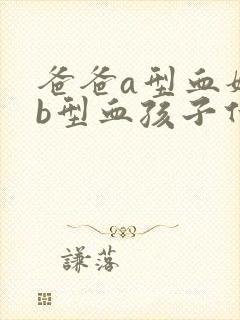 爸爸a型血
b型血孩子
谦落